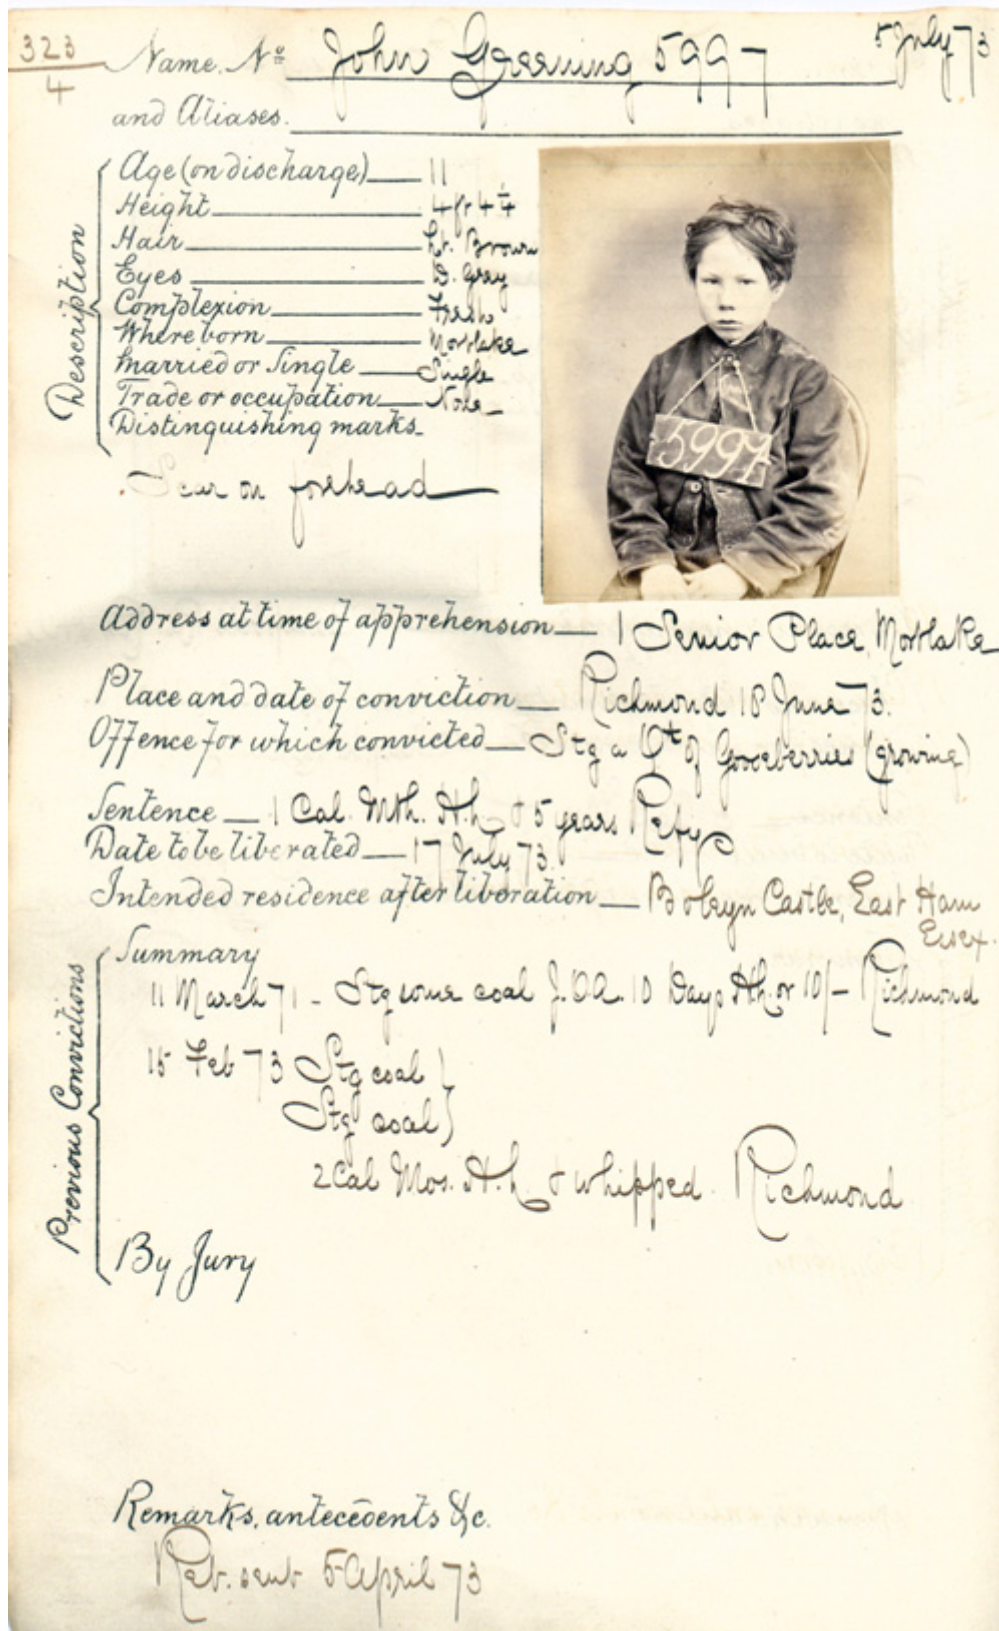 323
4
Name. No John Greening 5997
5 July 73
and Aliases.
Description
Age (on discharge) 11
Height 4ft 4 1/4
Hair Lt. Brown
Eyes D. Grey
Complexion Fresh
Where born Mortlake
Married or Single Single
Trade or occupation None
Distinguishing marks.
Scar on forehead
5997
Address at time of apprehension 1 Senior Place, Mortlake
Place and date of conviction Richmond 18 June 73.
Offence for which convicted Stg a Qt of Gooseberries (growing)
Sentence 1 Cal. Mth. H.h & 5 years Refy
Date to be liberated 17 July 73.
Intended residence after liberation Boleyn Castle, East Ham
Essex.
Previous Convictions
Summary
11 March 71 - Stg some coal J.O.A. 10 Days Hh. or 10/- Richmond
15 Feb 73 Stg coal }
Stg coal }
2 Cal Mos. H.h & whipped. Richmond
By Jury
Remarks, antecedents &c.
Ret. sent 5 April 73